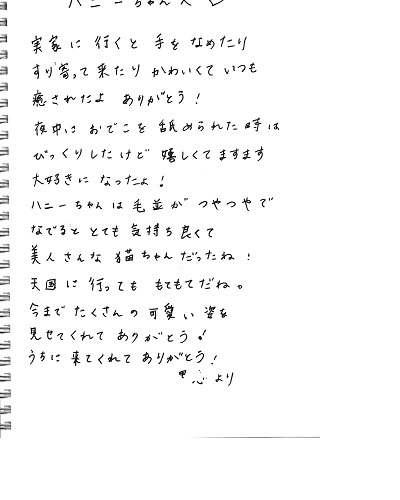 ハニーちゃんへ
実家に行くと手をなめたり
すり寄って来たりかわいくていつも
癒されたよ ありがとう!
夜中におでこを舐められた時は
びっくりしたけど嬉しくてますます
大好きになったよ!
ハニーちゃんは毛並がつやつやで
なでるととても気持ち良くて
美人さんな猫ちゃんだったね!
天国に行ってももてもてだね。
今までたくさんの可愛い姿を
見せてくれてありがとう!
うちに来てくれてありがとう!
より